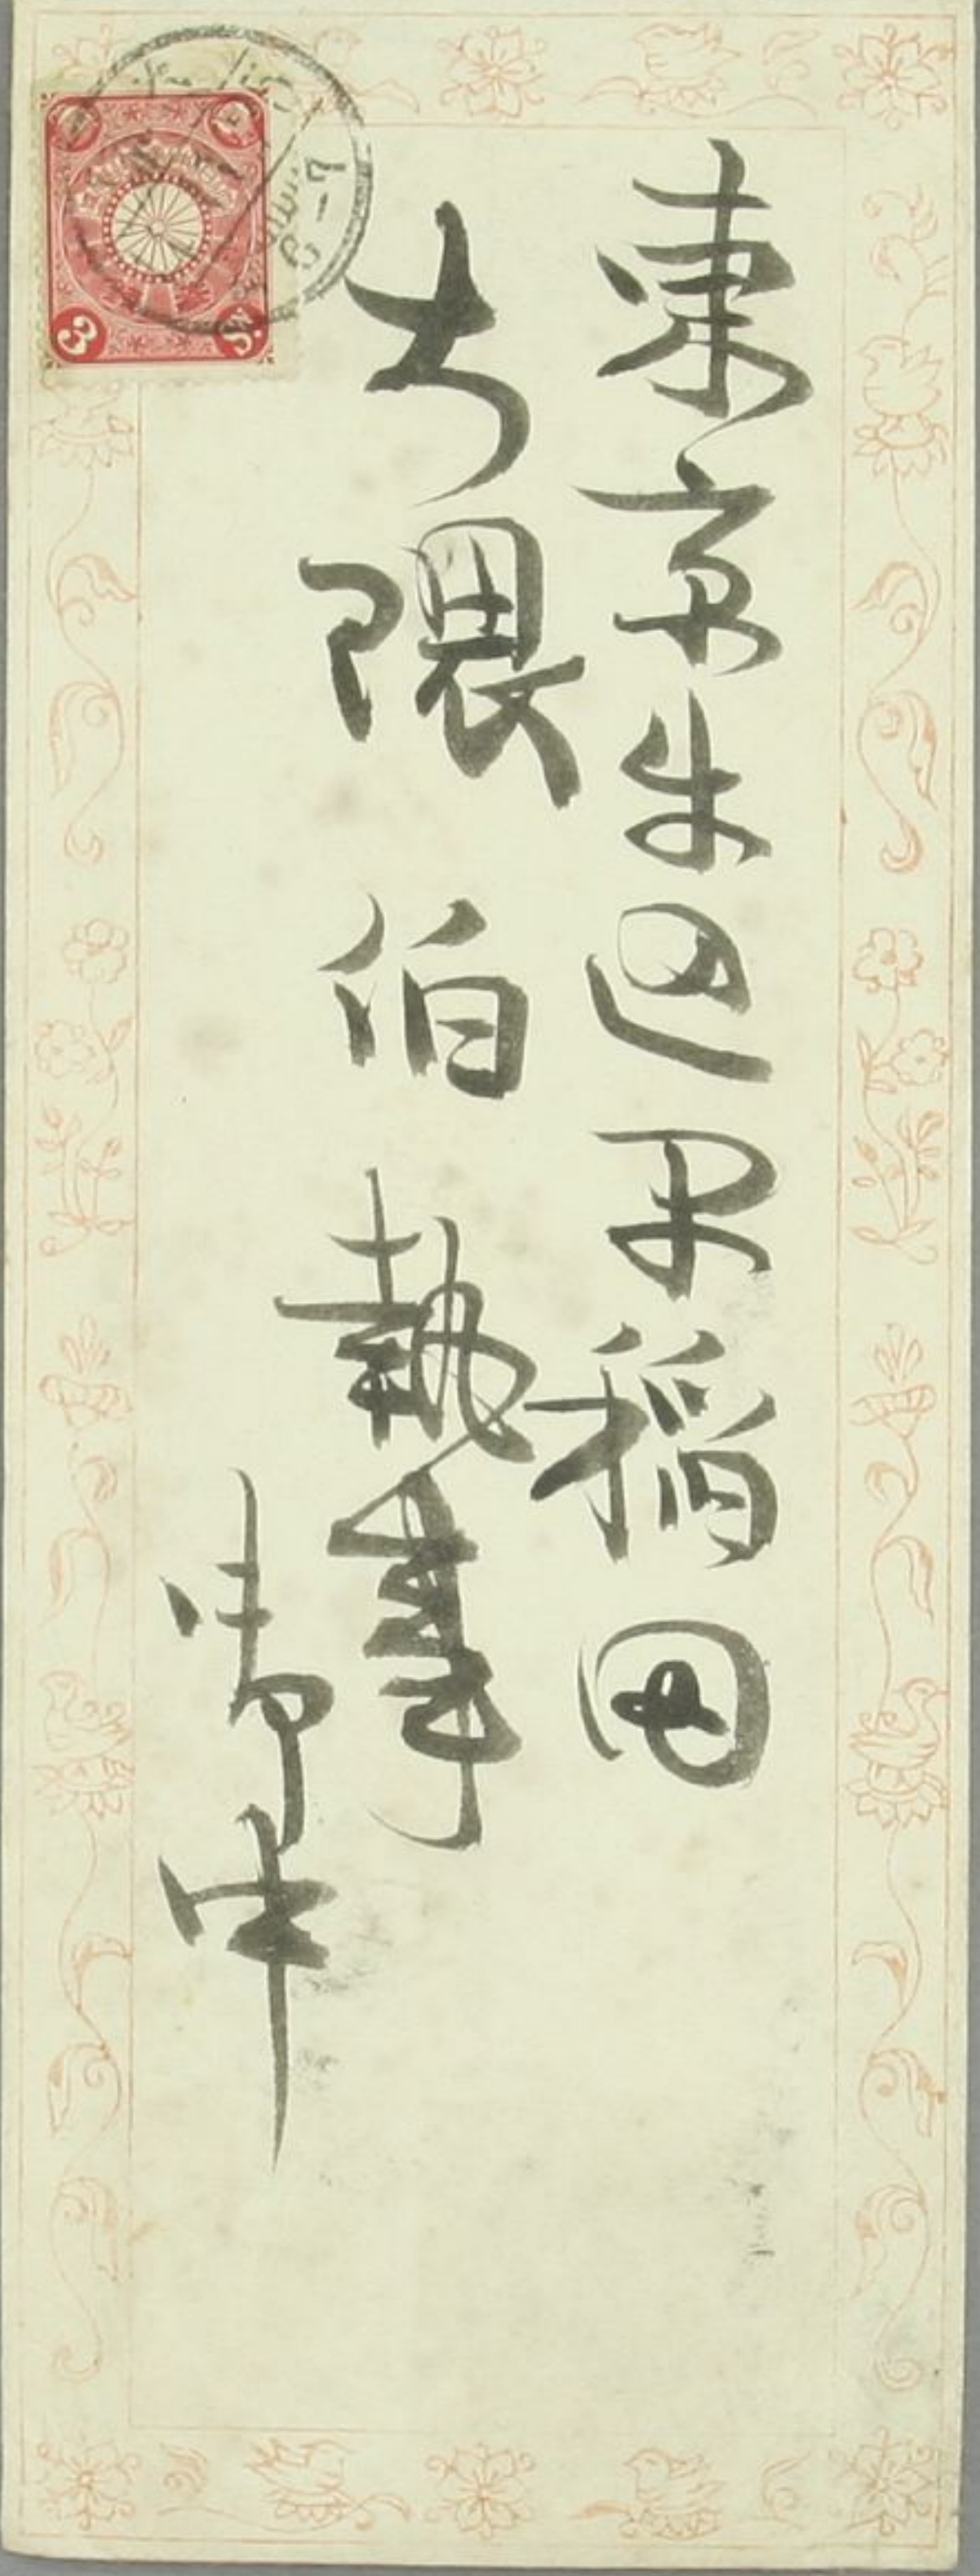 東京牛込早稲田
大隈伯執事
御中
3 Sn.